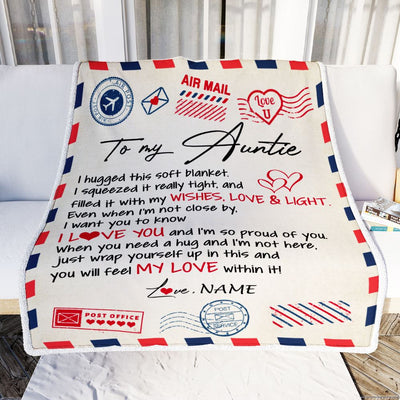 AIR POST
AIR MAIL
Love
U
To my Auntie
I hugged this soft blanket.
I squeezed it really tight, and
filled it with my WISHES, LOVE & LIGHT.
Even when I'm not close by.
I want you to know
I LOVE YOU and I'm so proud of you.
When you need a hug and I'm not here,
just wrap yourself up in this and
you will feel MY LOVE within it!
Love, NAME
POST OFFICE
POST
SERVICE